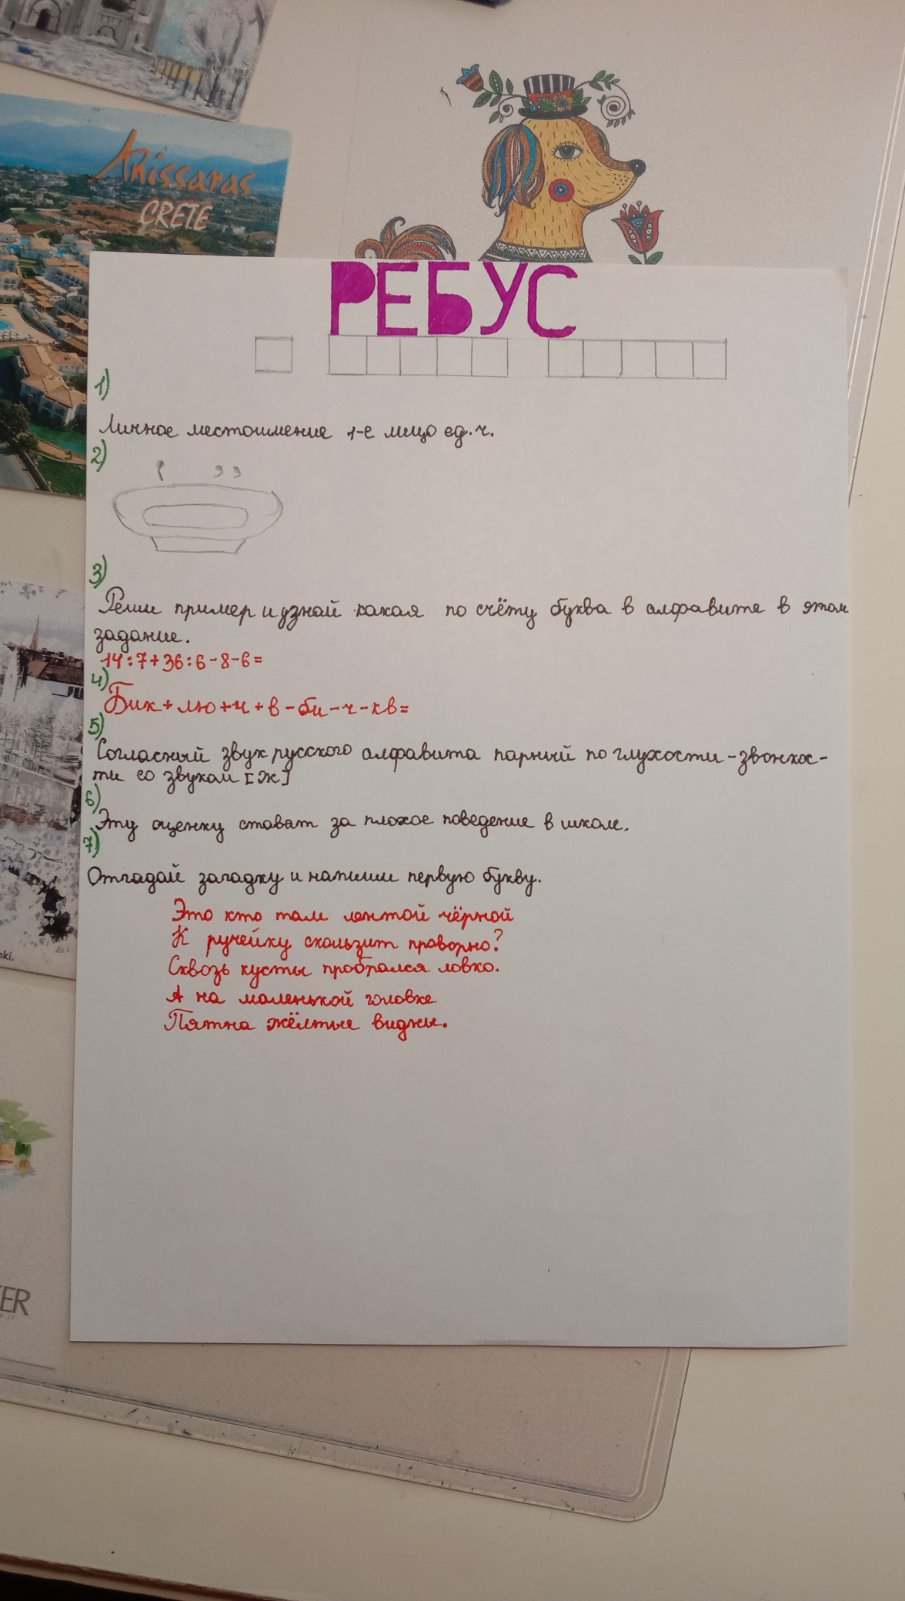 Anissaras
CRETE
РЕБУС
1)
Личное местоимение 1-е лицо ед.ч.
2)
, ,,
3)
Реши пример и узнай какая по счёту буква в алфавите в этом
задание.
14:7+36:6-8-6=
4)
Бик+лю+ч+в-би-ч-кв=
5)
Согласный звук русского алфавита парный по глухости-звонкос-
ти со звуком [ж]
6)
Эту оценку ставят за плохое поведение в школе.
7)
Отгадай загадку и напиши первую букву.
Это кто там лентой чёрной
К ручейку скользит проворно?
Сквозь кусты пробрался ловко.
А на маленькой головке
Пятна жёлтые видны.
ki.
ER